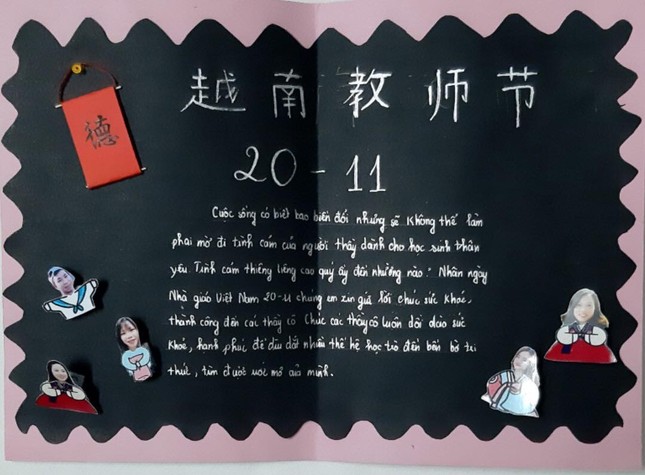 德
越南教师节
20-11
Cuộc sống có biết bao biến đổi nhưng sẽ không thể làm
phai mờ đi tình cảm của người thầy dành cho học sinh thân
yêu. Tình cảm thiêng liêng cao quý ấy đời nhường nào! Nhân ngày
Nhà giáo Việt Nam 20-11 chúng em xin gửi lời chúc sức khoẻ,
thành công đến các thầy cô Chúc các thầy cô luôn dồi dào sức
khoẻ, hạnh phúc để dìu dắt nhiều thế hệ học trò đến bến bờ tri
thức, tìm được ước mơ của mình.